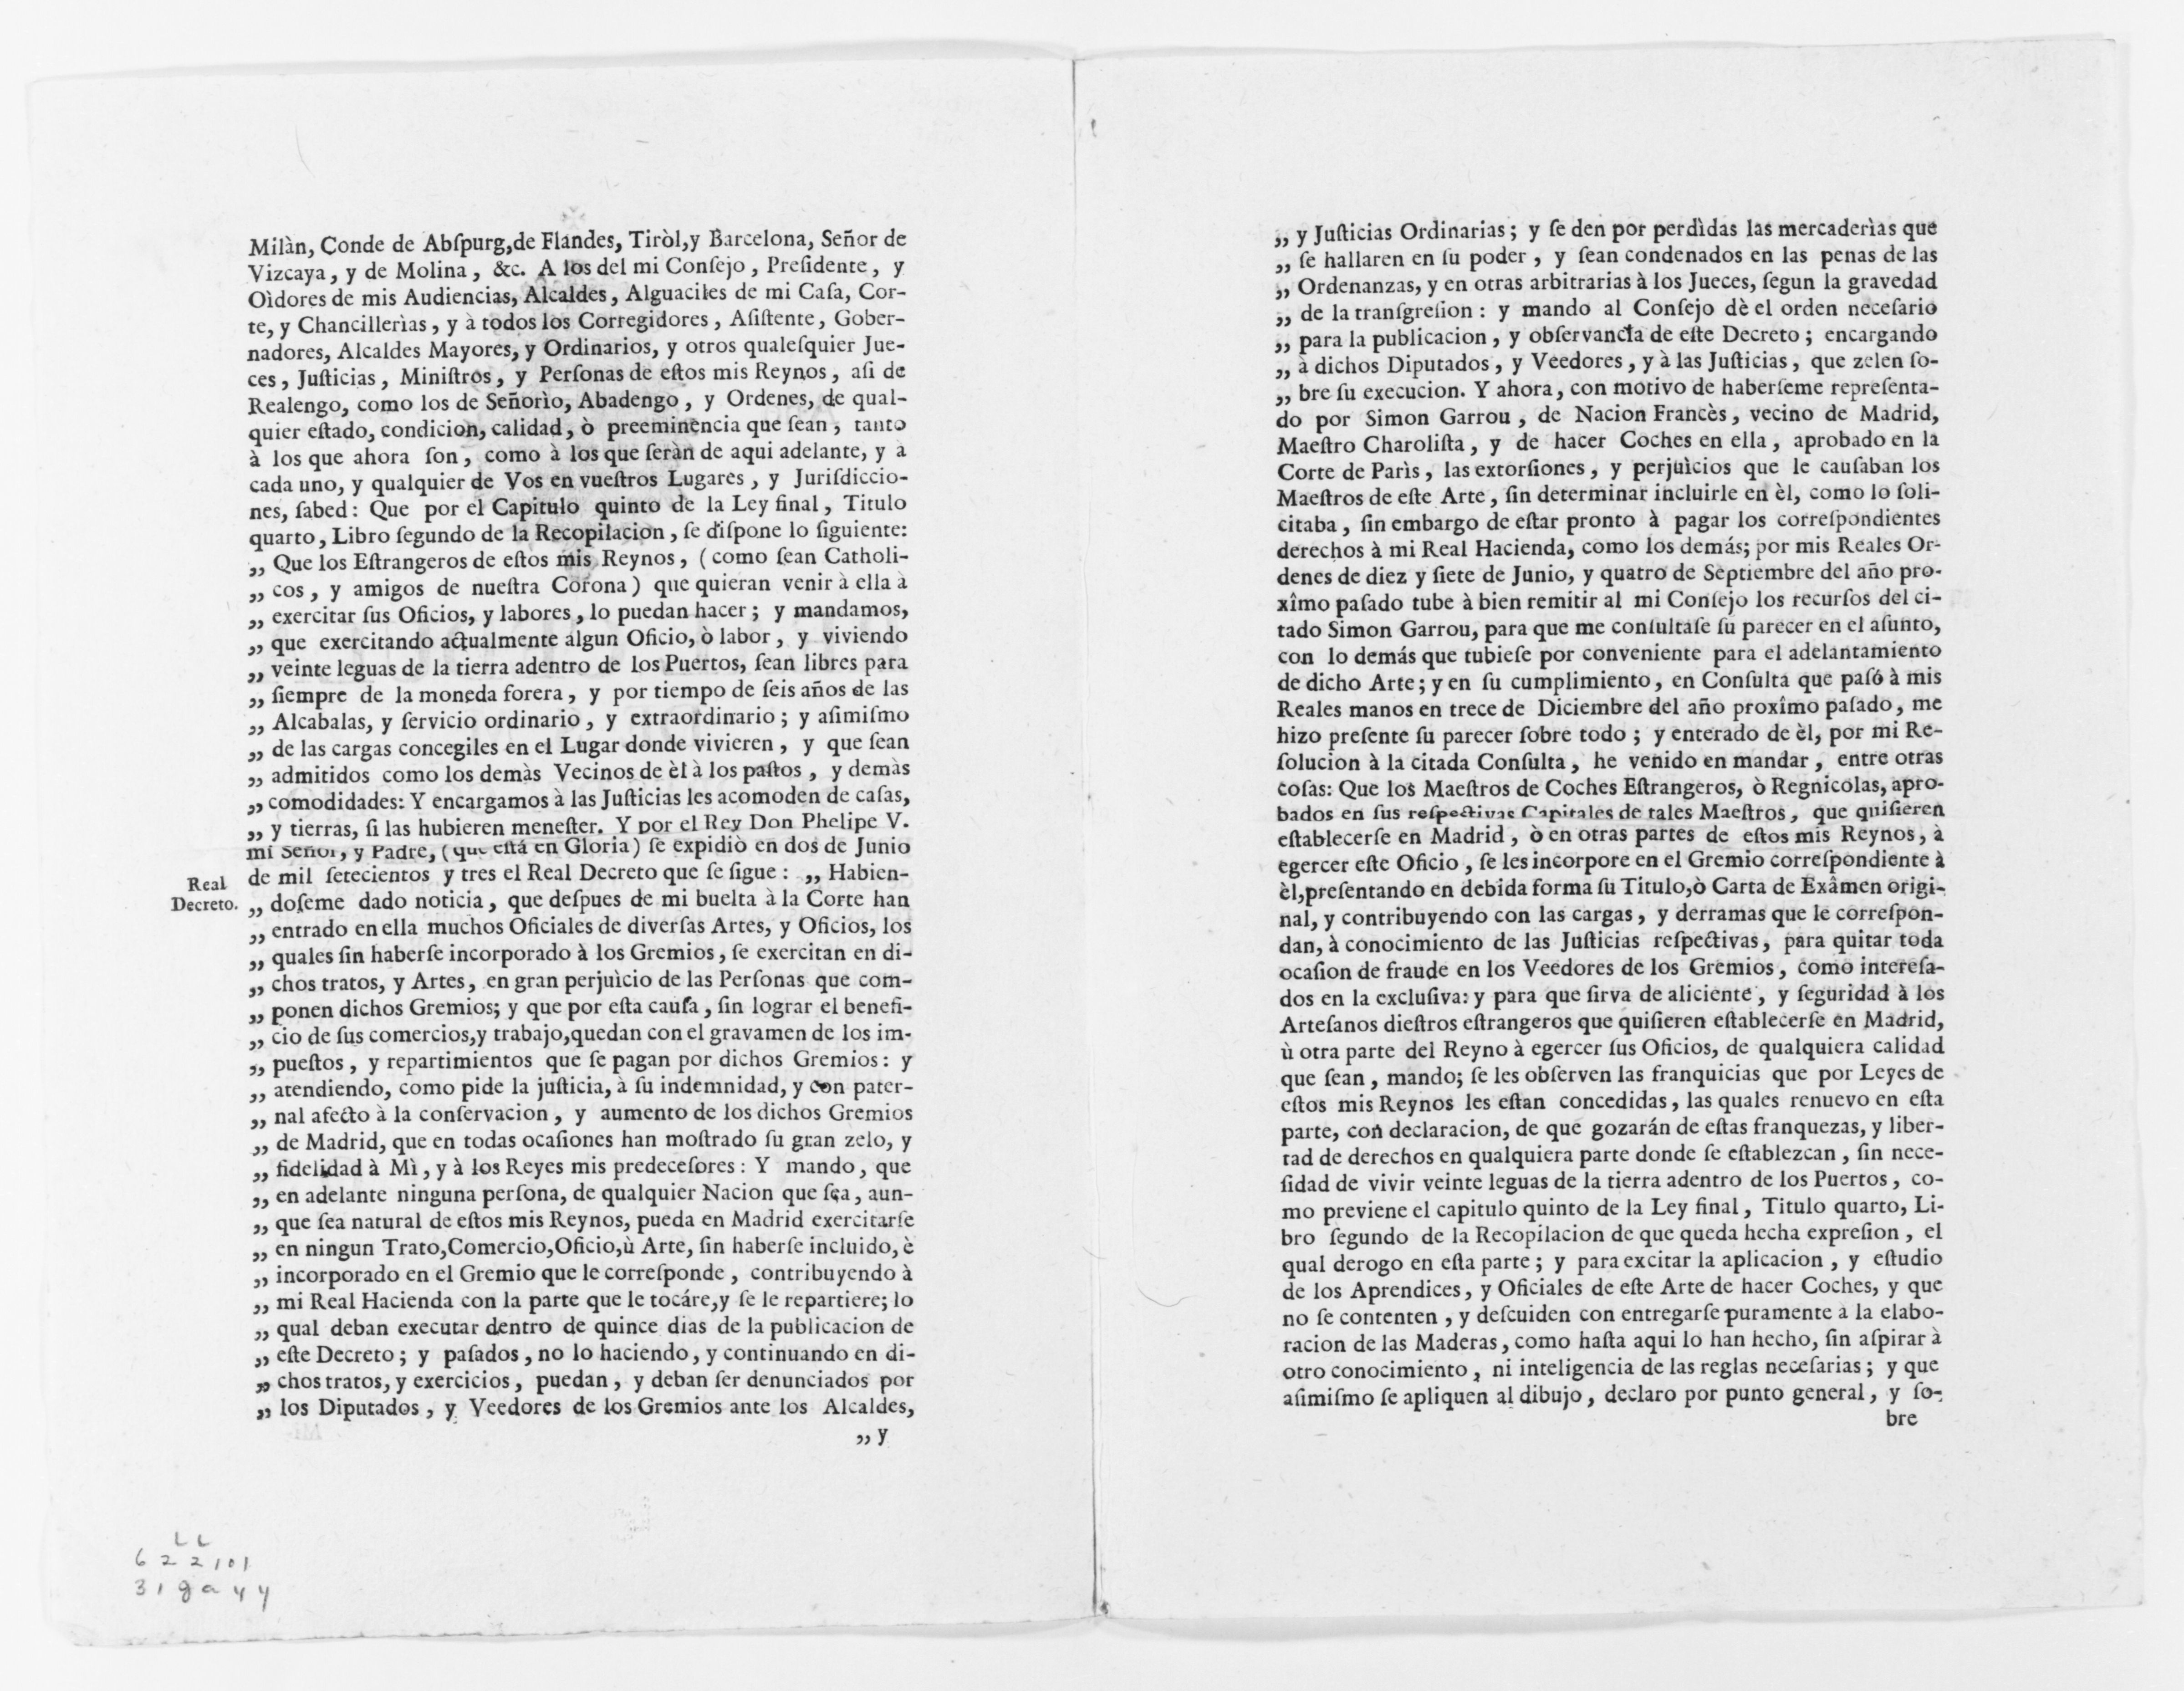 Milàn, Conde de Abſpurg,de Flandes, Tiròl,y Barcelona, Señor de
Vizcaya, y de Molina, &c. A los del mi Conſejo, Preſidente, y
Oìdores de mis Audiencias, Alcaldes, Alguaciles de mi Caſa, Cor-
te, y Chancillerìas, y à todos los Corregidores, Aſiſtente, Gober-
nadores, Alcaldes Mayores, y Ordinarios, y otros qualeſquier Jue-
ces, Juſticias, Miniſtros, y Perſonas de eſtos mis Reynos, aſi de
Realengo, como los de Señorìo, Abadengo, y Ordenes, de qual-
quier eſtado, condicion, calidad, ò preeminencia que ſean, tanto
à los que ahora ſon, como à los que ſeràn de aqui adelante, y à
cada uno, y qualquier de Vos en vueſtros Lugares, y Juriſdiccio-
nes, ſabed: Que por el Capitulo quinto de la Ley final, Titulo
quarto, Libro ſegundo de la Recopilacion, ſe diſpone lo ſiguiente:
„ Que los Eſtrangeros de eſtos mis Reynos, (como ſean Catholi-
„ cos, y amigos de nueſtra Corona) que quieran venir à ella à
„ exercitar ſus Oficios, y labores, lo puedan hacer; y mandamos,
„ que exercitando actualmente algun Oficio, ò labor, y viviendo
„ veinte leguas de la tierra adentro de los Puertos, ſean libres para
„ ſiempre de la moneda forera, y por tiempo de ſeis años de las
„ Alcabalas, y ſervicio ordinario, y extraordinario; y aſimiſmo
„ de las cargas concegiles en el Lugar donde vivieren, y que ſean
„ admitidos como los demàs Vecinos de èl à los paſtos, y demàs
„ comodidades: Y encargamos à las Juſticias les acomoden de caſas,
„ y tierras, ſi las hubieren meneſter. Y por el Rey Don Phelipe V.
mi Señor, y Padre, (que eſtá en Gloria) ſe expidiò en dos de Junio
de mil ſetecientos y tres el Real Decreto que ſe ſigue: „ Habien-
Real
Decreto.
„ doſeme dado noticia, que deſpues de mi buelta à la Corte han
„ entrado en ella muchos Oficiales de diverſas Artes, y Oficios, los
„ quales ſin haberſe incorporado à los Gremios, ſe exercitan en di-
„ chos tratos, y Artes, en gran perjuìcio de las Perſonas que com-
„ ponen dichos Gremios; y que por eſta cauſa, ſin lograr el benefi-
„ cio de ſus comercios,y trabajo,quedan con el gravamen de los im-
„ pueſtos, y repartimientos que ſe pagan por dichos Gremios: y
„ atendiendo, como pide la juſticia, à ſu indemnidad, y con pater-
„ nal afecto à la conſervacion, y aumento de los dichos Gremios
„ de Madrid, que en todas ocaſiones han moſtrado ſu gran zelo, y
„ fidelidad à Mì, y à los Reyes mis predeceſores: Y mando, que
„ en adelante ninguna perſona, de qualquier Nacion que ſea, aun-
„ que ſea natural de eſtos mis Reynos, pueda en Madrid exercitarſe
„ en ningun Trato,Comercio,Oficio,ù Arte, ſin haberſe incluido, è
„ incorporado en el Gremio que le correſponde, contribuyendo à
„ mi Real Hacienda con la parte que le tocáre,y ſe le repartiere; lo
„ qual deban executar dentro de quince dias de la publicacion de
„ eſte Decreto; y paſados, no lo haciendo, y continuando en di-
„ chos tratos, y exercicios, puedan, y deban ſer denunciados por
„ los Diputados, y Veedores de los Gremios ante los Alcaldes,
„ y
LL
622101
31ga44
„ y Juſticias Ordinarias; y ſe den por perdìdas las mercaderìas que
„ ſe hallaren en ſu poder, y ſean condenados en las penas de las
„ Ordenanzas, y en otras arbitrarias à los Jueces, ſegun la gravedad
„ de la tranſgreſion: y mando al Conſejo dè el orden neceſario
„ para la publicacion, y obſervancia de eſte Decreto; encargando
„ à dichos Diputados, y Veedores, y à las Juſticias, que zelen ſo-
„ bre ſu execucion. Y ahora, con motivo de haberſeme repreſenta-
do por Simon Garrou, de Nacion Francès, vecino de Madrid,
Maeſtro Charoliſta, y de hacer Coches en ella, aprobado en la
Corte de Parìs, las extorſiones, y perjuìcios que le cauſaban los
Maeſtros de eſte Arte, ſin determinar incluirle en èl, como lo ſoli-
citaba, ſin embargo de eſtar pronto à pagar los correſpondientes
derechos à mi Real Hacienda, como los demás; por mis Reales Or-
denes de diez y ſiete de Junio, y quatro de Septiembre del año pro-
xîmo paſado tube à bien remitir al mi Conſejo los recurſos del ci-
tado Simon Garrou, para que me conſultaſe ſu parecer en el aſunto,
con lo demás que tubieſe por conveniente para el adelantamiento
de dicho Arte; y en ſu cumplimiento, en Conſulta que paſó à mis
Reales manos en trece de Diciembre del año proxîmo paſado, me
hizo preſente ſu parecer ſobre todo; y enterado de èl, por mi Re-
ſolucion à la citada Conſulta, he venido en mandar, entre otras
coſas: Que los Maeſtros de Coches Eſtrangeros, ò Regnicolas, apro-
bados en ſus reſpectivas Capitales de tales Maeſtros, que quiſieren
eſtablecerſe en Madrid, ò en otras partes de eſtos mis Reynos, à
egercer eſte Oficio, ſe les incorpore en el Gremio correſpondiente à
èl,preſentando en debida forma ſu Titulo,ò Carta de Exâmen origi-
nal, y contribuyendo con las cargas, y derramas que le correſpon-
dan, à conocimiento de las Juſticias reſpectivas, para quitar toda
ocaſion de fraude en los Veedores de los Gremios, como intereſa-
dos en la excluſiva: y para que ſirva de aliciente, y ſeguridad à los
Arteſanos dieſtros eſtrangeros que quiſieren eſtablecerſe en Madrid,
ù otra parte del Reyno à egercer ſus Oficios, de qualquiera calidad
que ſean, mando; ſe les obſerven las franquicias que por Leyes de
eſtos mis Reynos les eſtan concedidas, las quales renuevo en eſta
parte, con declaracion, de que gozarán de eſtas franquezas, y liber-
tad de derechos en qualquiera parte donde ſe eſtablezcan, ſin nece-
ſidad de vivir veinte leguas de la tierra adentro de los Puertos, co-
mo previene el capitulo quinto de la Ley final, Titulo quarto, Li-
bro ſegundo de la Recopilacion de que queda hecha expreſion, el
qual derogo en eſta parte; y para excitar la aplicacion, y eſtudio
de los Aprendices, y Oficiales de eſte Arte de hacer Coches, y que
no ſe contenten, y deſcuiden con entregarſe puramente à la elabo-
racion de las Maderas, como haſta aqui lo han hecho, ſin aſpirar à
otro conocimiento, ni inteligencia de las reglas neceſarias; y que
aſimiſmo ſe apliquen al dibujo, declaro por punto general, y ſo-
bre